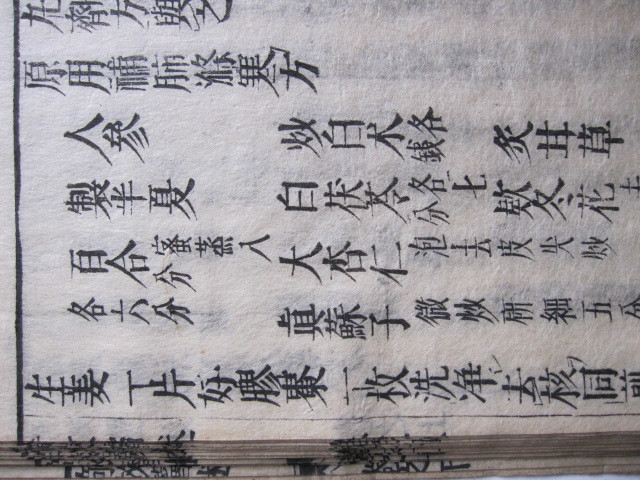 原用補肺滌寒方
人參 炒白朮各錢 炙甘草
製半夏 白茯苓各七分 款冬花
百合蜜蒸八分 大杏仁泡去皮尖炒
各六分 真蘇子微炒研細五分
生姜一片好膠棗一枚洗淨去核同前